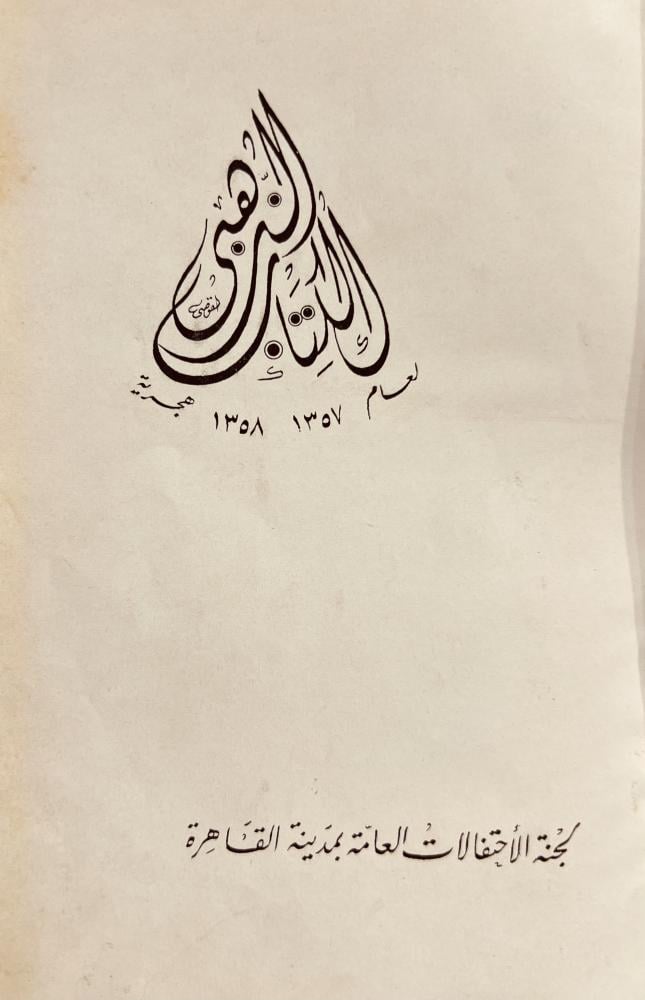 الكتاب الذهبى
لعام ١٣٥٧ ١٣٥٨ هجرية
لجنة الأحتفالات العامّة بمدَينة القَاهِرة